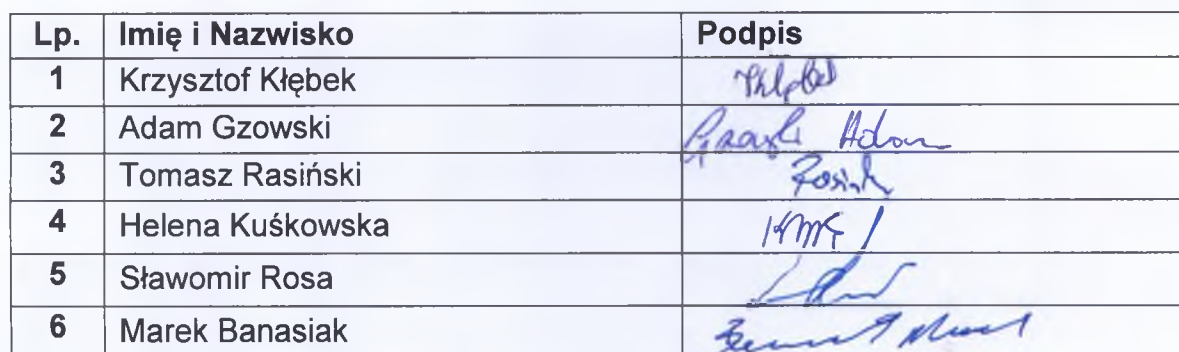 Lp. Imię i Nazwisko Podpis
1 Krzysztof Kłębek
2 Adam Gzowski Adam
3 Tomasz Rasiński
4 Helena Kuśkowska
5 Sławomir Rosa
6 Marek Banasiak